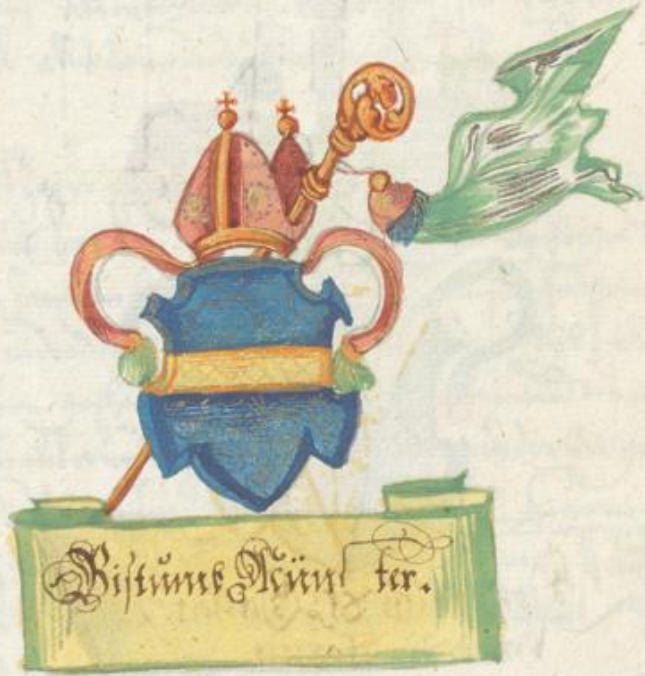 Bistumb Münster.